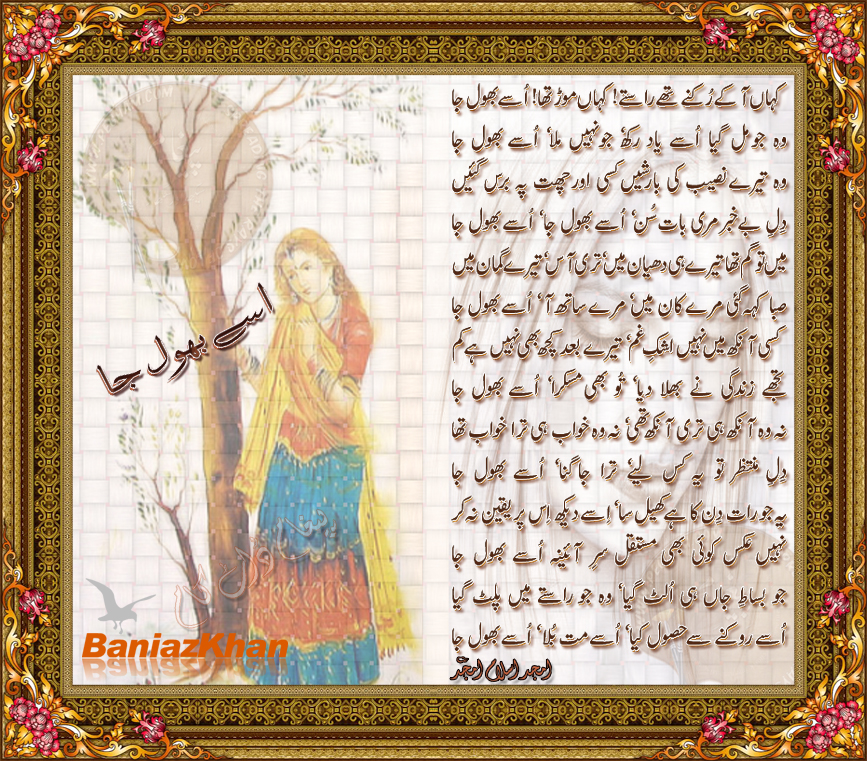 کہاں آ کے رُکنے تھے راستے! کہاں موڑ تھا! اُسے بھول جا
وہ جو مل گیا اُسے یاد رکھ، جو نہیں ملا، اُسے بھول جا
وہ تیرے نصیب کی بارشیں کسی اور چھت پہ برس گئیں
دِلِ بے خبر مری بات سُن، اُسے بھول جا، اُسے بھول جا
میں تو گم تھا تیرے ہی دھیان میں، تری آس، تیرے گمان میں
صبا کہہ گئی مرے کان میں، مرے ساتھ آ، اُسے بھول جا
کسی آنکھ میں نہیں اشکِ غم، تیرے بعد کچھ بھی نہیں ہے کم
تجھے زندگی نے بھلا دیا، تُو بھی مسکرا، اُسے بھول جا
نہ وہ آنکھ ہی تری آنکھ تھی، نہ وہ خواب ہی ترا خواب تھا
دِلِ منتظر تو یہ کس لیے، ترا جاگنا، اُسے بھول جا
یہ جو رات دِن کا ہے کھیل سا، اِسے دیکھ اِس پر یقین نہ کر
نہیں عکس کوئی بھی مستقل سرِ آئینہ اُسے بھول جا
جو بساطِ جاں ہی اُلٹ گیا، وہ جو راستے میں پلٹ گیا
اُسے روکنے سے حصول کیا، اُسے مت بُلا، اُسے بھول جا
امجد اسلام امجد
اسے بھول جا
BaniazKhan